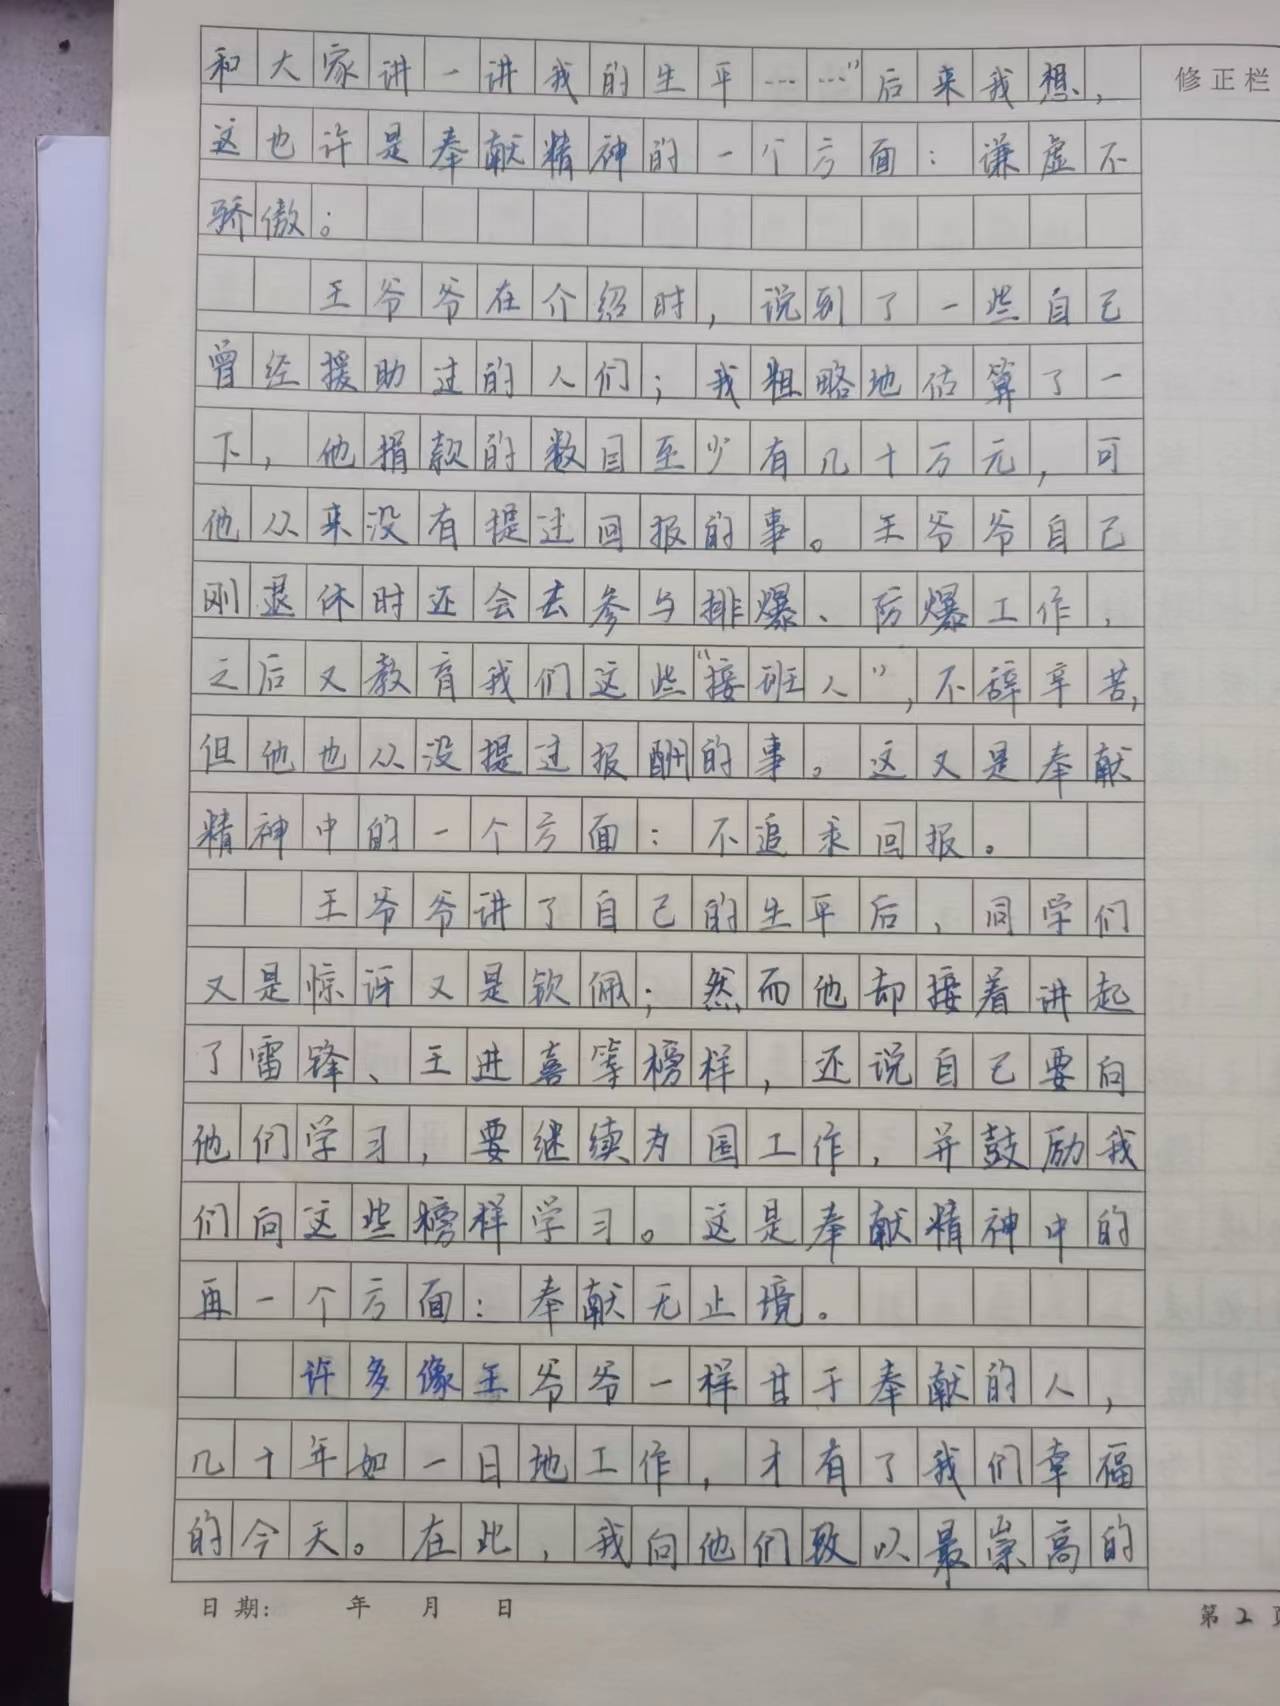 和大家讲一讲我的生平……”后来我想，
修正栏
这也许是奉献精神的一个方面：谦虚不
骄傲。
王爷爷在介绍时，说到了一些自己
曾经援助过的人们；我粗略地估算了一
下，他捐款的数目至少有几十万元，可
他从来没有提过回报的事。王爷爷自己
刚退休时还会去参与排爆、防爆工作，
之后又教育我们这些“接班人”，不辞辛苦，
但他也从没提过报酬的事。这又是奉献
精神中的一个方面：不追求回报。
王爷爷讲了自己的生平后，同学们
又是惊讶又是钦佩；然而他却接着讲起
了雷锋、王进喜等榜样，还说自己要向
他们学习，要继续为国工作，并鼓励我
们向这些榜样学习。这是奉献精神中的
再一个方面：奉献无止境。
许多像王爷爷一样甘于奉献的人，
几十年如一日地工作，才有了我们幸福
的今天。在此，我向他们致以最崇高的
日期：　年　月　日
第2页